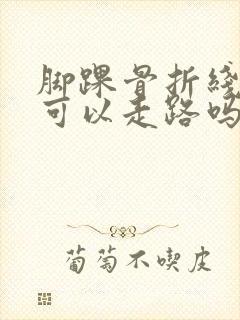 脚踝骨折线
可以走路吗
葡萄不喫皮